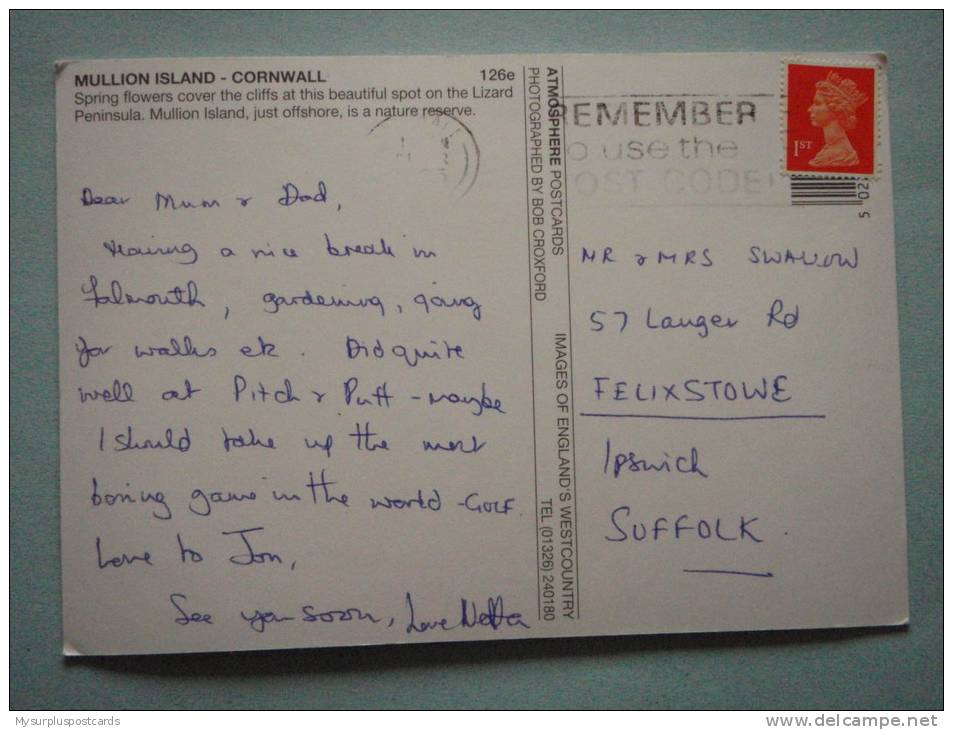 MULLION ISLAND - CORNWALL 126e
Spring flowers cover the cliffs at this beautiful spot on the Lizard
Peninsula. Mullion Island, just offshore, is a nature reserve.
Dear Mum & Dad,
Having a nice break in
Falmouth, gardening, going
for walks etc. Did quite
well at Pitch & Putt - maybe
I should take up the most
boring game in the world - GOLF.
Love to Jon,
See you soon, Love Netta
ATMOSPHERE POSTCARDS IMAGES OF ENGLAND'S WESTCOUNTRY
PHOTOGRAPHED BY BOB CROXFORD TEL (01326) 240180
REMEMBER
to use the
POST CODE!
1ST
5 02
MR & MRS SWALLOW
57 Langer Rd
FELIXSTOWE
Ipswich
SUFFOLK.
Mysurpluspostcards
www.delcampe.net